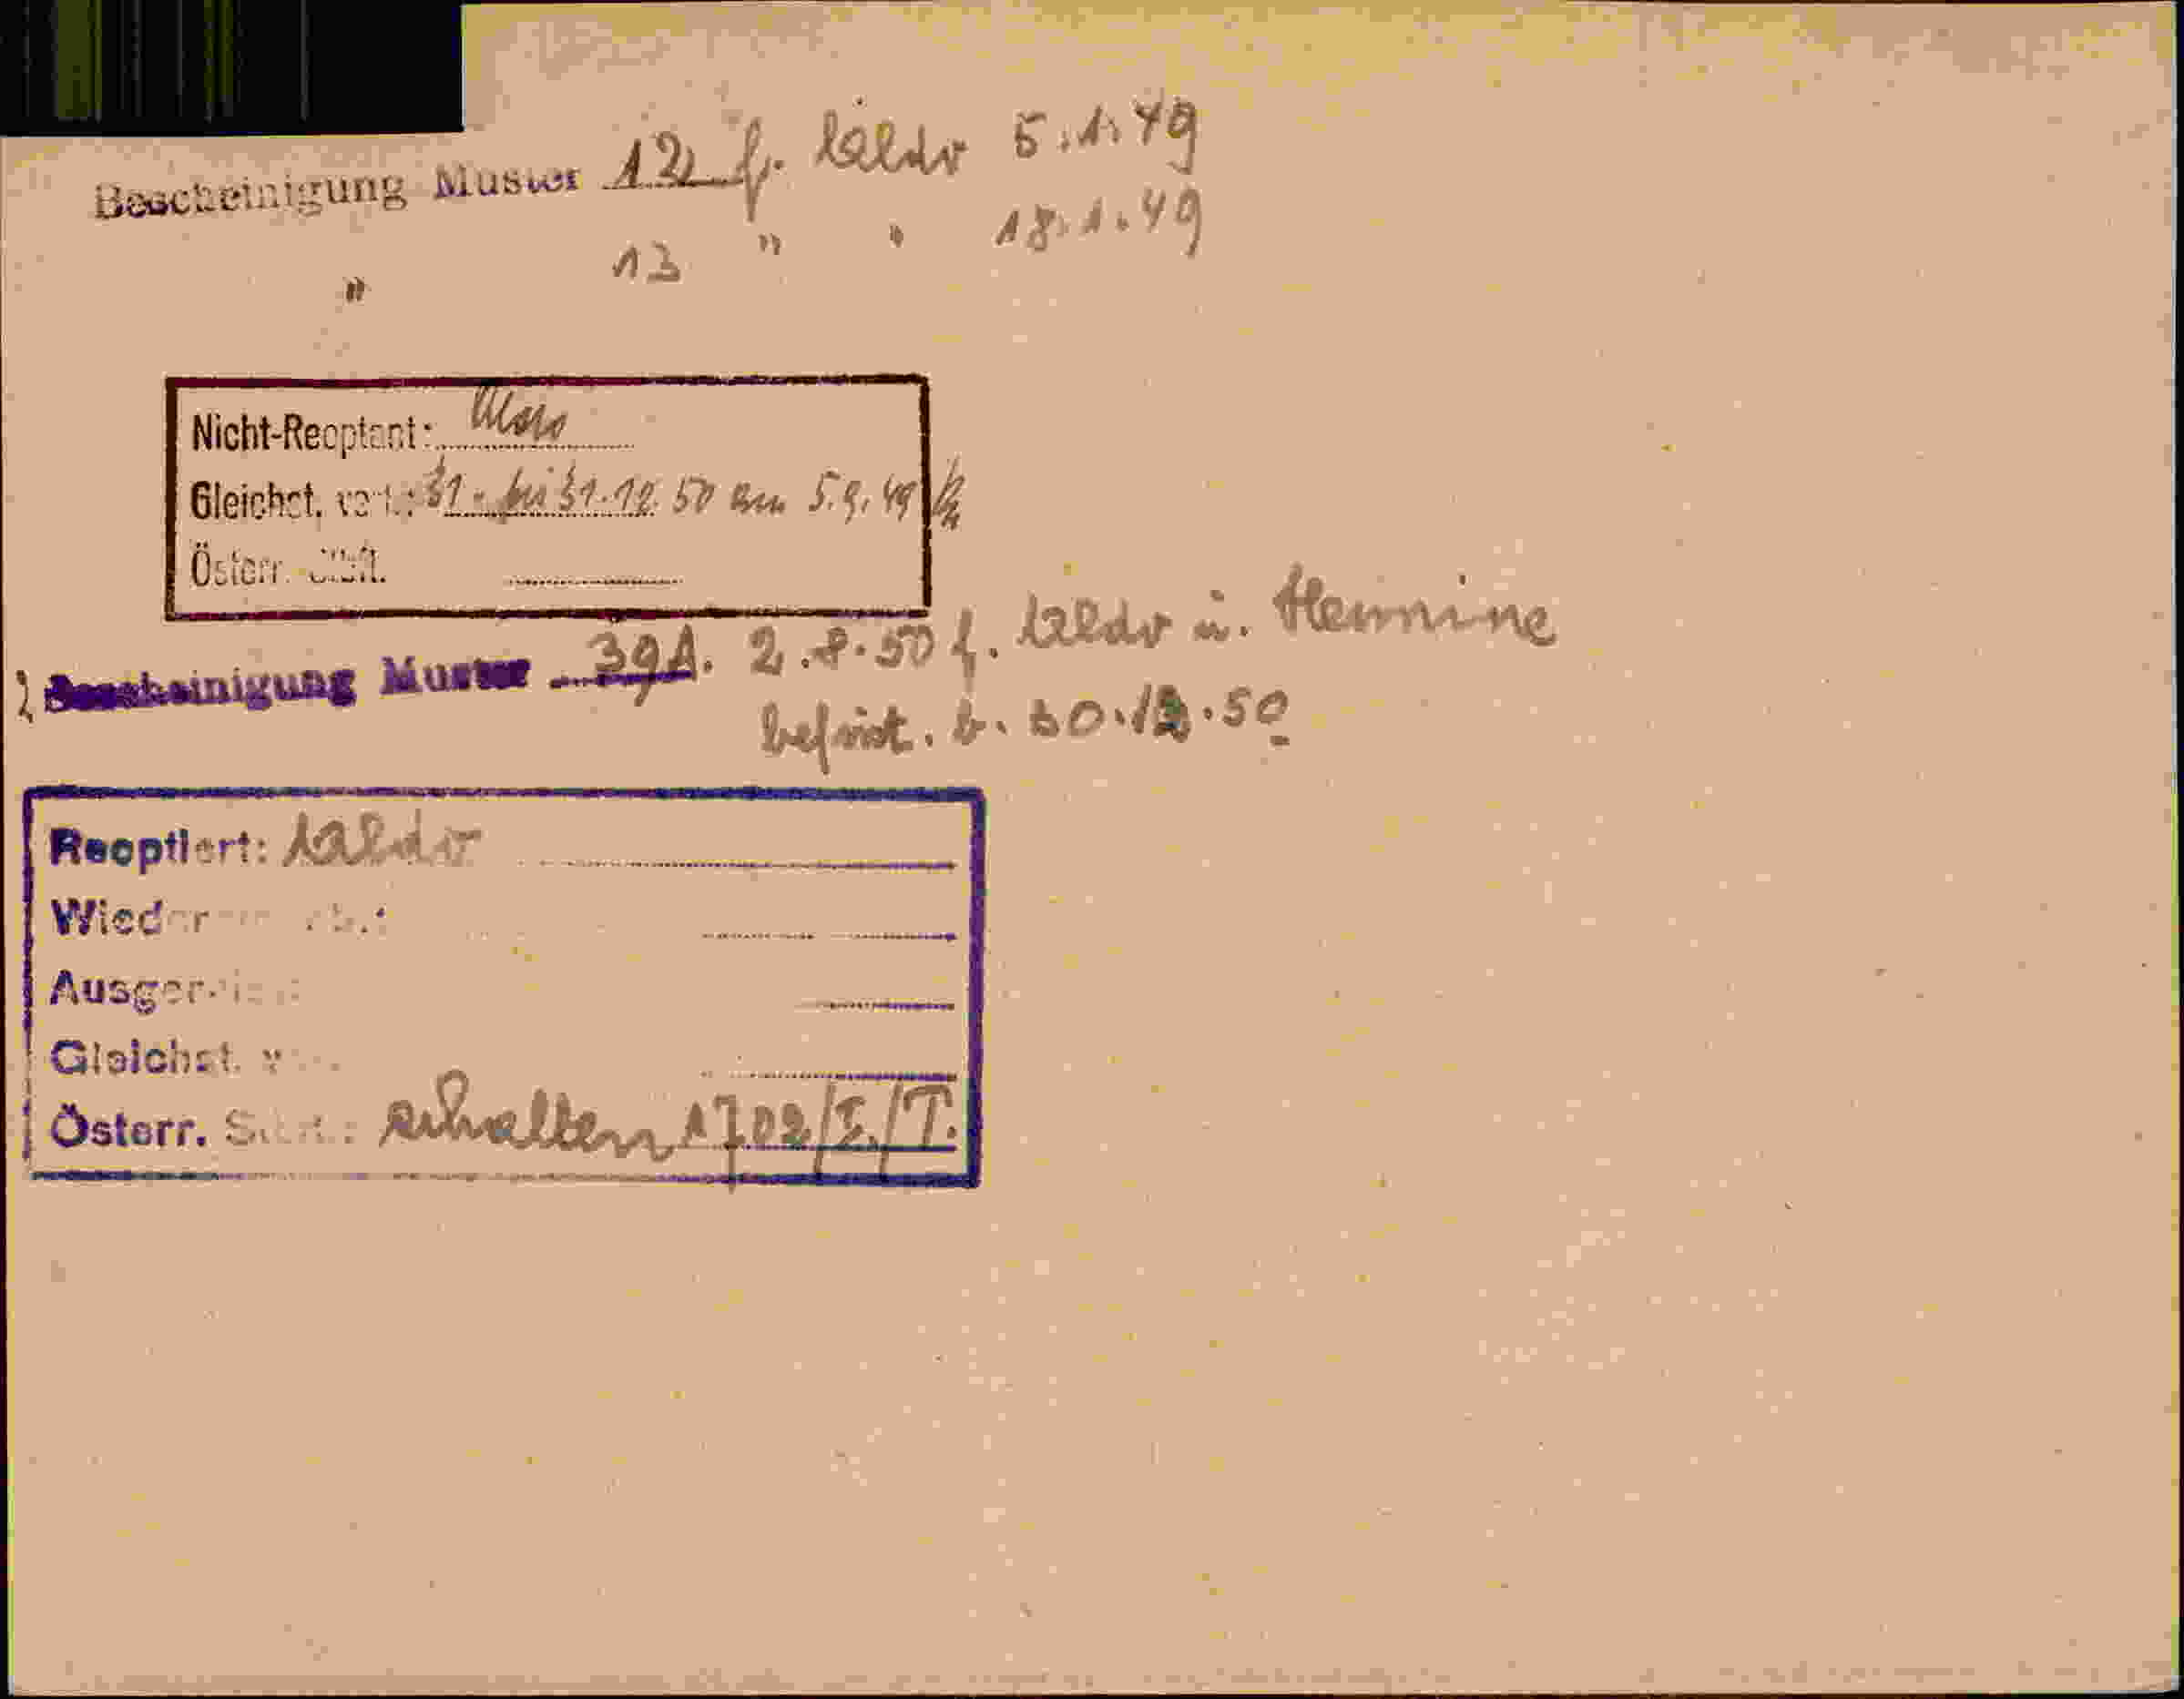 Bescheinigung Muster 12 f. Aldo 5.1.49
" 13 " " 18.1.49
Nicht-Reoptant:
Gleichst. verl.: 31. bis 31.12.50 am 5.9.49
Österr. Stbft.
2 Bescheinigung Muster 39A. 2.8.50 f. Aldo u. Hermine
befrist. b. 30.12.50
Reoptiert: Aldo
Wieder
Ausgereist:
Gleichst. v
Österr. Stbft.: erhalten 1702/I/T.